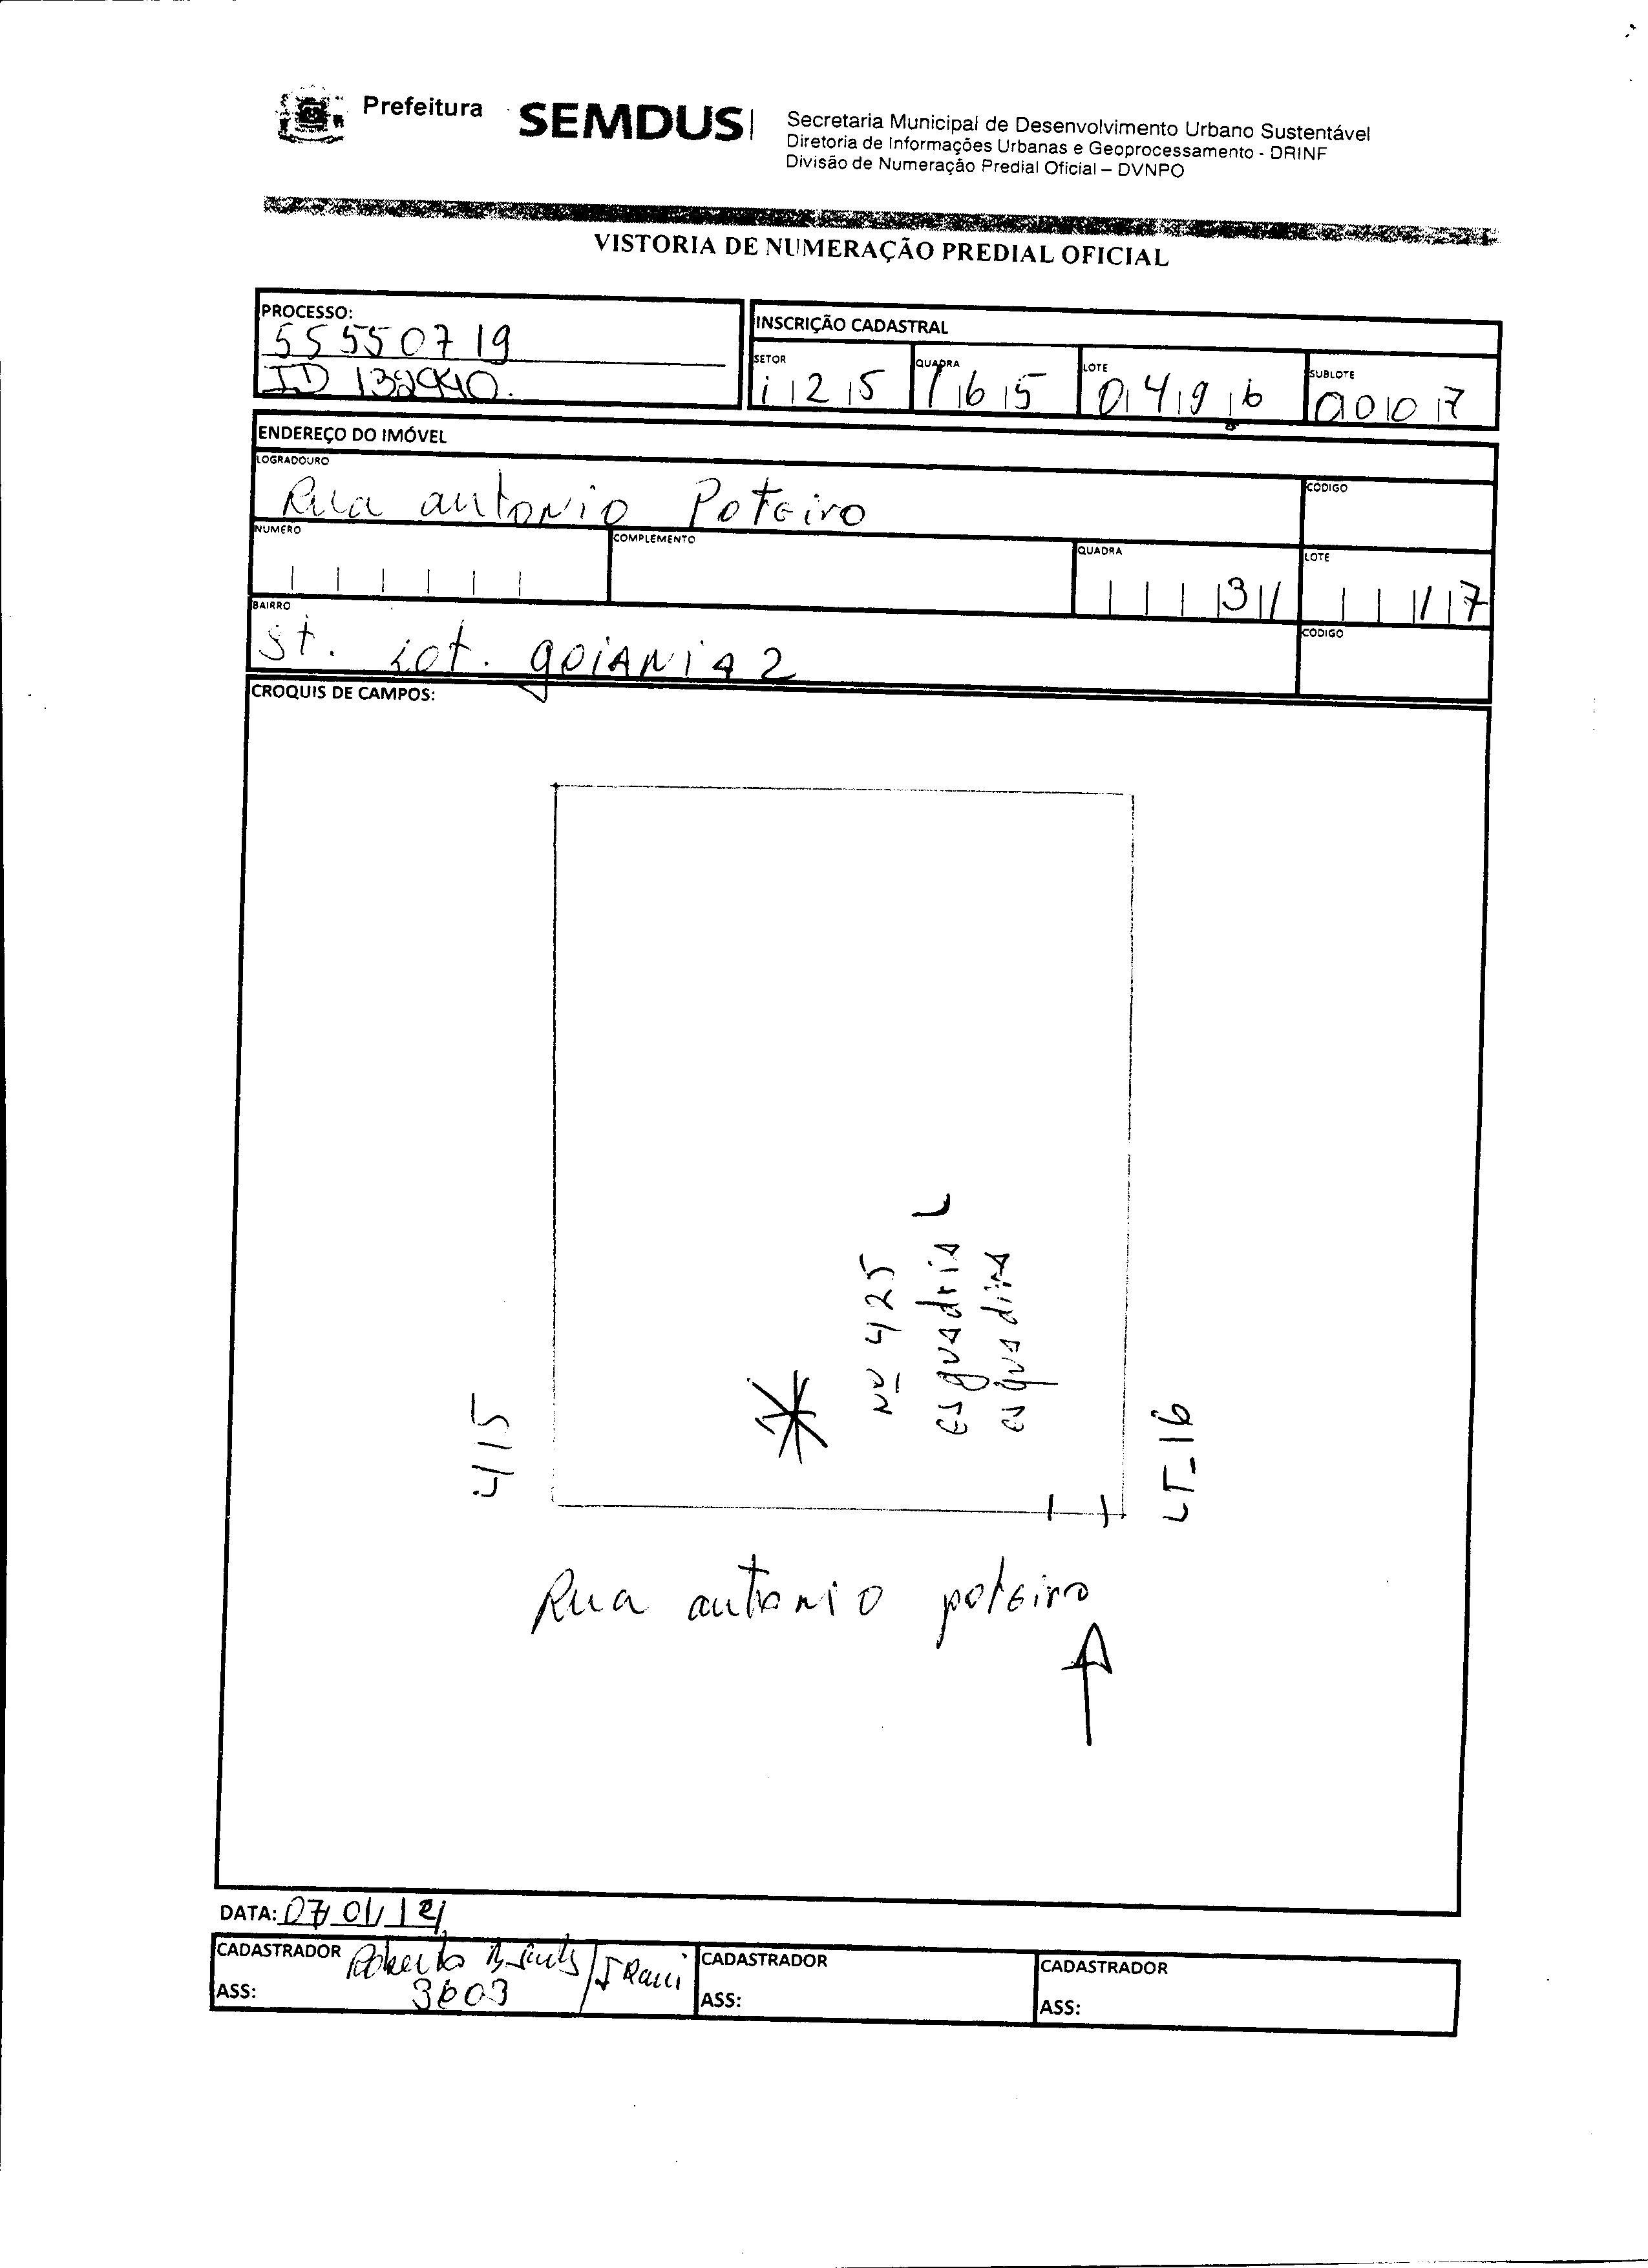 Prefeitura SEMDUS
Secretaria Municipal de Desenvolvimento Urbano Sustentável
Diretoria de Informações Urbanas e Geoprocessamento - DRINF
Divisão de Numeração Predial Oficial – DVNPO
VISTORIA DE NUMERAÇÃO PREDIAL OFICIAL
PROCESSO:
55550719
ID 132990.
INSCRIÇÃO CADASTRAL
SETOR QUADRA LOTE SUBLOTE
1 2 5 1 6 5 0 4 9 6 0 0 0 7
ENDEREÇO DO IMÓVEL
LOGRADOURO CODIGO
Rua antonio Poteiro
NUMERO COMPLEMENTO QUADRA LOTE
31 17
BAIRRO CODIGO
St. Lot. goiania 2
CROQUIS DE CAMPOS:
Nº 425
esquadria L
esquadina
415
LT_16
Rua antonio poteiro
DATA: 07/01/121
CADASTRADOR Roberto
ASS: 3603
CADASTRADOR
ASS:
CADASTRADOR
ASS: